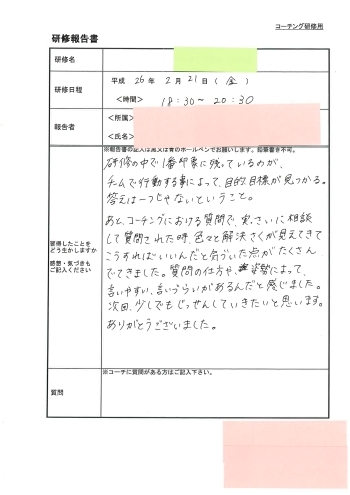 コーチング研修用
研修報告書
研修名
研修日程
平成 26 年 2 月 21 日 ( 金 )
<時間> 18:30~20:30
報告者
<所属>
<氏名>
※報告書の記入は黒又は青のボールペンでお願いします。鉛筆書き不可。
習得したことを
どう生かしますか
感想・気づきも
ご記入ください
研修の中で1番印象に残っているのが、
チームで行動する事によって、目的、目標が見つかる。
答えは一つじゃないということ。
あと、コーチングにおける質問で、実さいに相談
して質問された時、色々と解決さくが見えてきて
こうすればいいんだと気づいた点がたくさん
でてきました。質問の仕方や、姿勢によって、
言いやすい、言いづらいがあるんだと感じました。
次回、少しでもじっせんしていきたいと思います。
ありがとうございました。
※コーチに質問がある方はご記入下さい。
質問